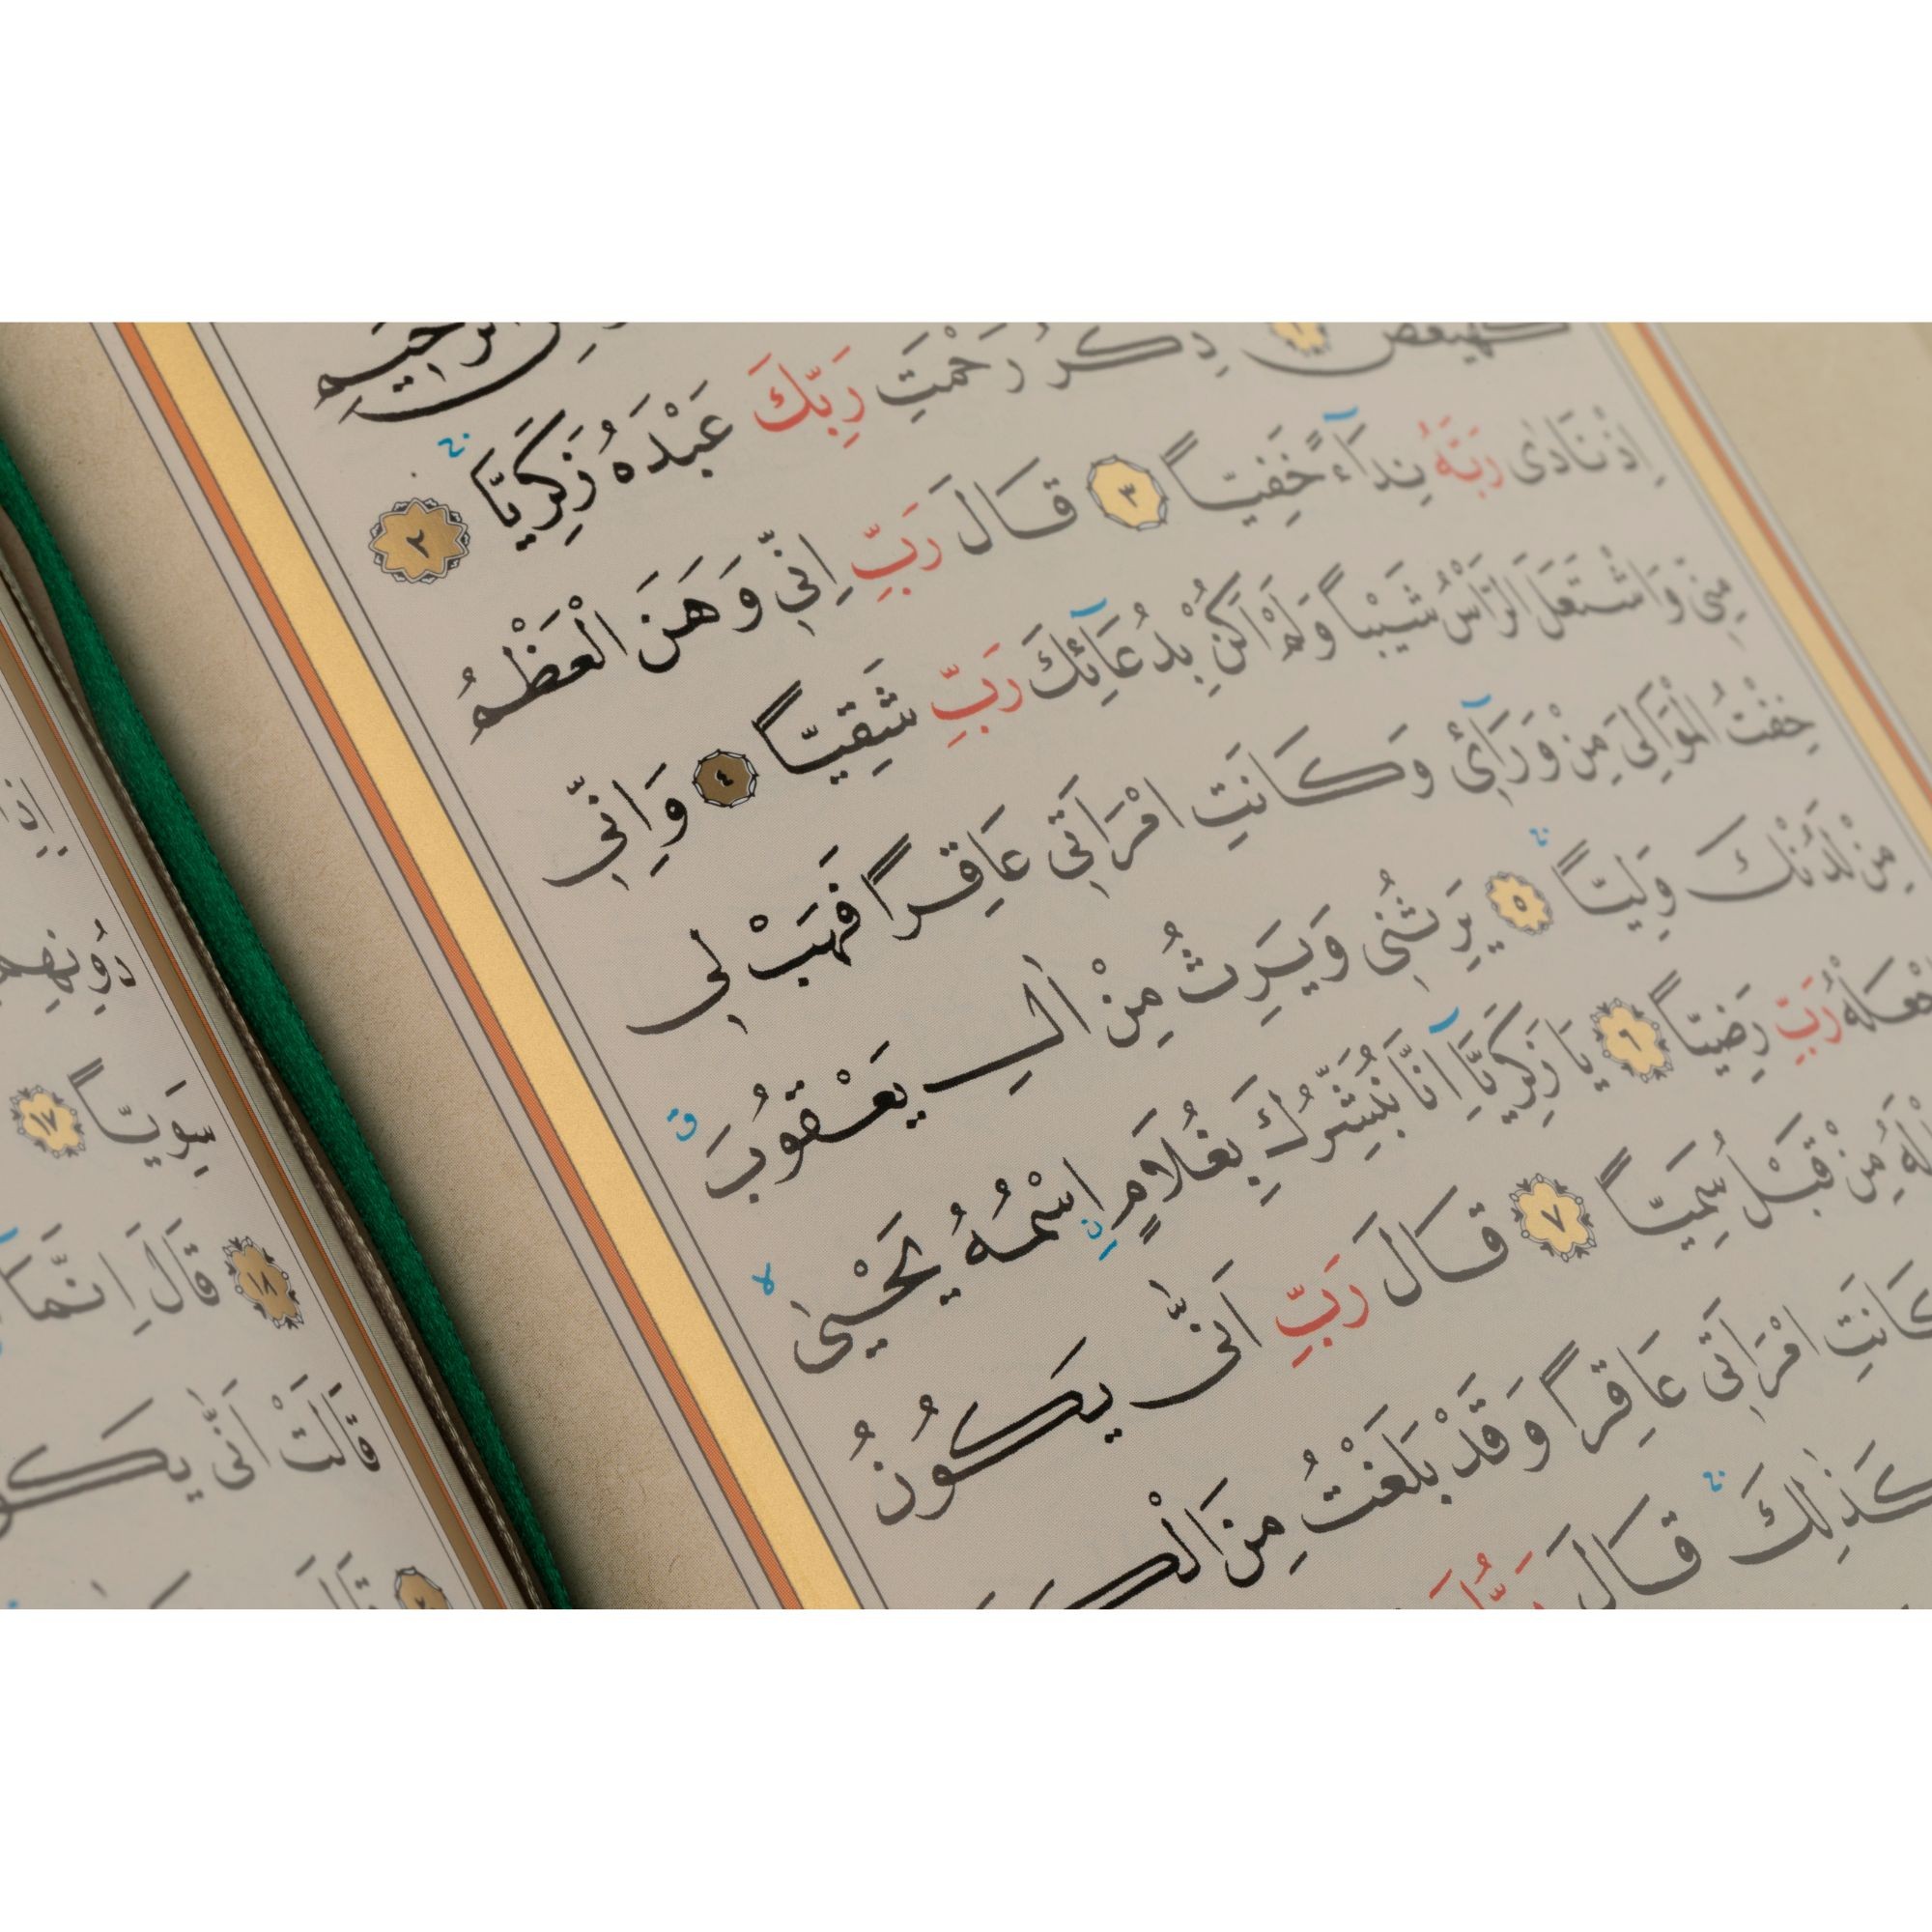 كهيعص ١
ذِكْرُ رَحْمَتِ رَبِّكَ عَبْدَهُ زَكَرِيَّا ۚ ٢
اِذْ نَادٰى رَبَّهُ نِدَٓاءً خَفِيًّا ٣ قَالَ رَبِّ اِنّ۪ي وَهَنَ الْعَظْمُ
مِنّ۪ي وَاشْتَعَلَ الرَّأْسُ شَيْبًا وَلَمْ اَكُنْ بِدُعَٓائِكَ رَبِّ شَقِيًّا ٤ وَاِنّ۪ي
خِفْتُ الْمَوَالِيَ مِنْ وَرَٓاء۪ي وَكَانَتِ امْرَاَت۪ي عَاقِرًا فَهَبْ ل۪ي
مِنْ لَدُنْكَ وَلِيًّا ۙ ٥ يَرِثُن۪ي وَيَرِثُ مِنْ اٰلِ يَعْقُوبَ ۗ
وَاجْعَلْهُ رَبِّ رَضِيًّا ٦ يَا زَكَرِيَّٓا اِنَّا نُبَشِّرُكَ بِغُلَامٍ ۨاسْمُهُ يَحْيٰى ۙ
لَهُ مِنْ قَبْلُ سَمِيًّا ٧ قَالَ رَبِّ اَنّٰى يَكُونُ
كَانَتِ امْرَاَت۪ي عَاقِرًا وَقَدْ بَلَغْتُ مِنَ الْكِبَرِ
كَذٰلِكَ ۚ قَالَ رَبُّكَ
دُونِهِمْ
سَوِيًّا ١٧
١٨ قَالَ اِنَّمَٓا
قَالَتْ اَنّٰى يَكُو